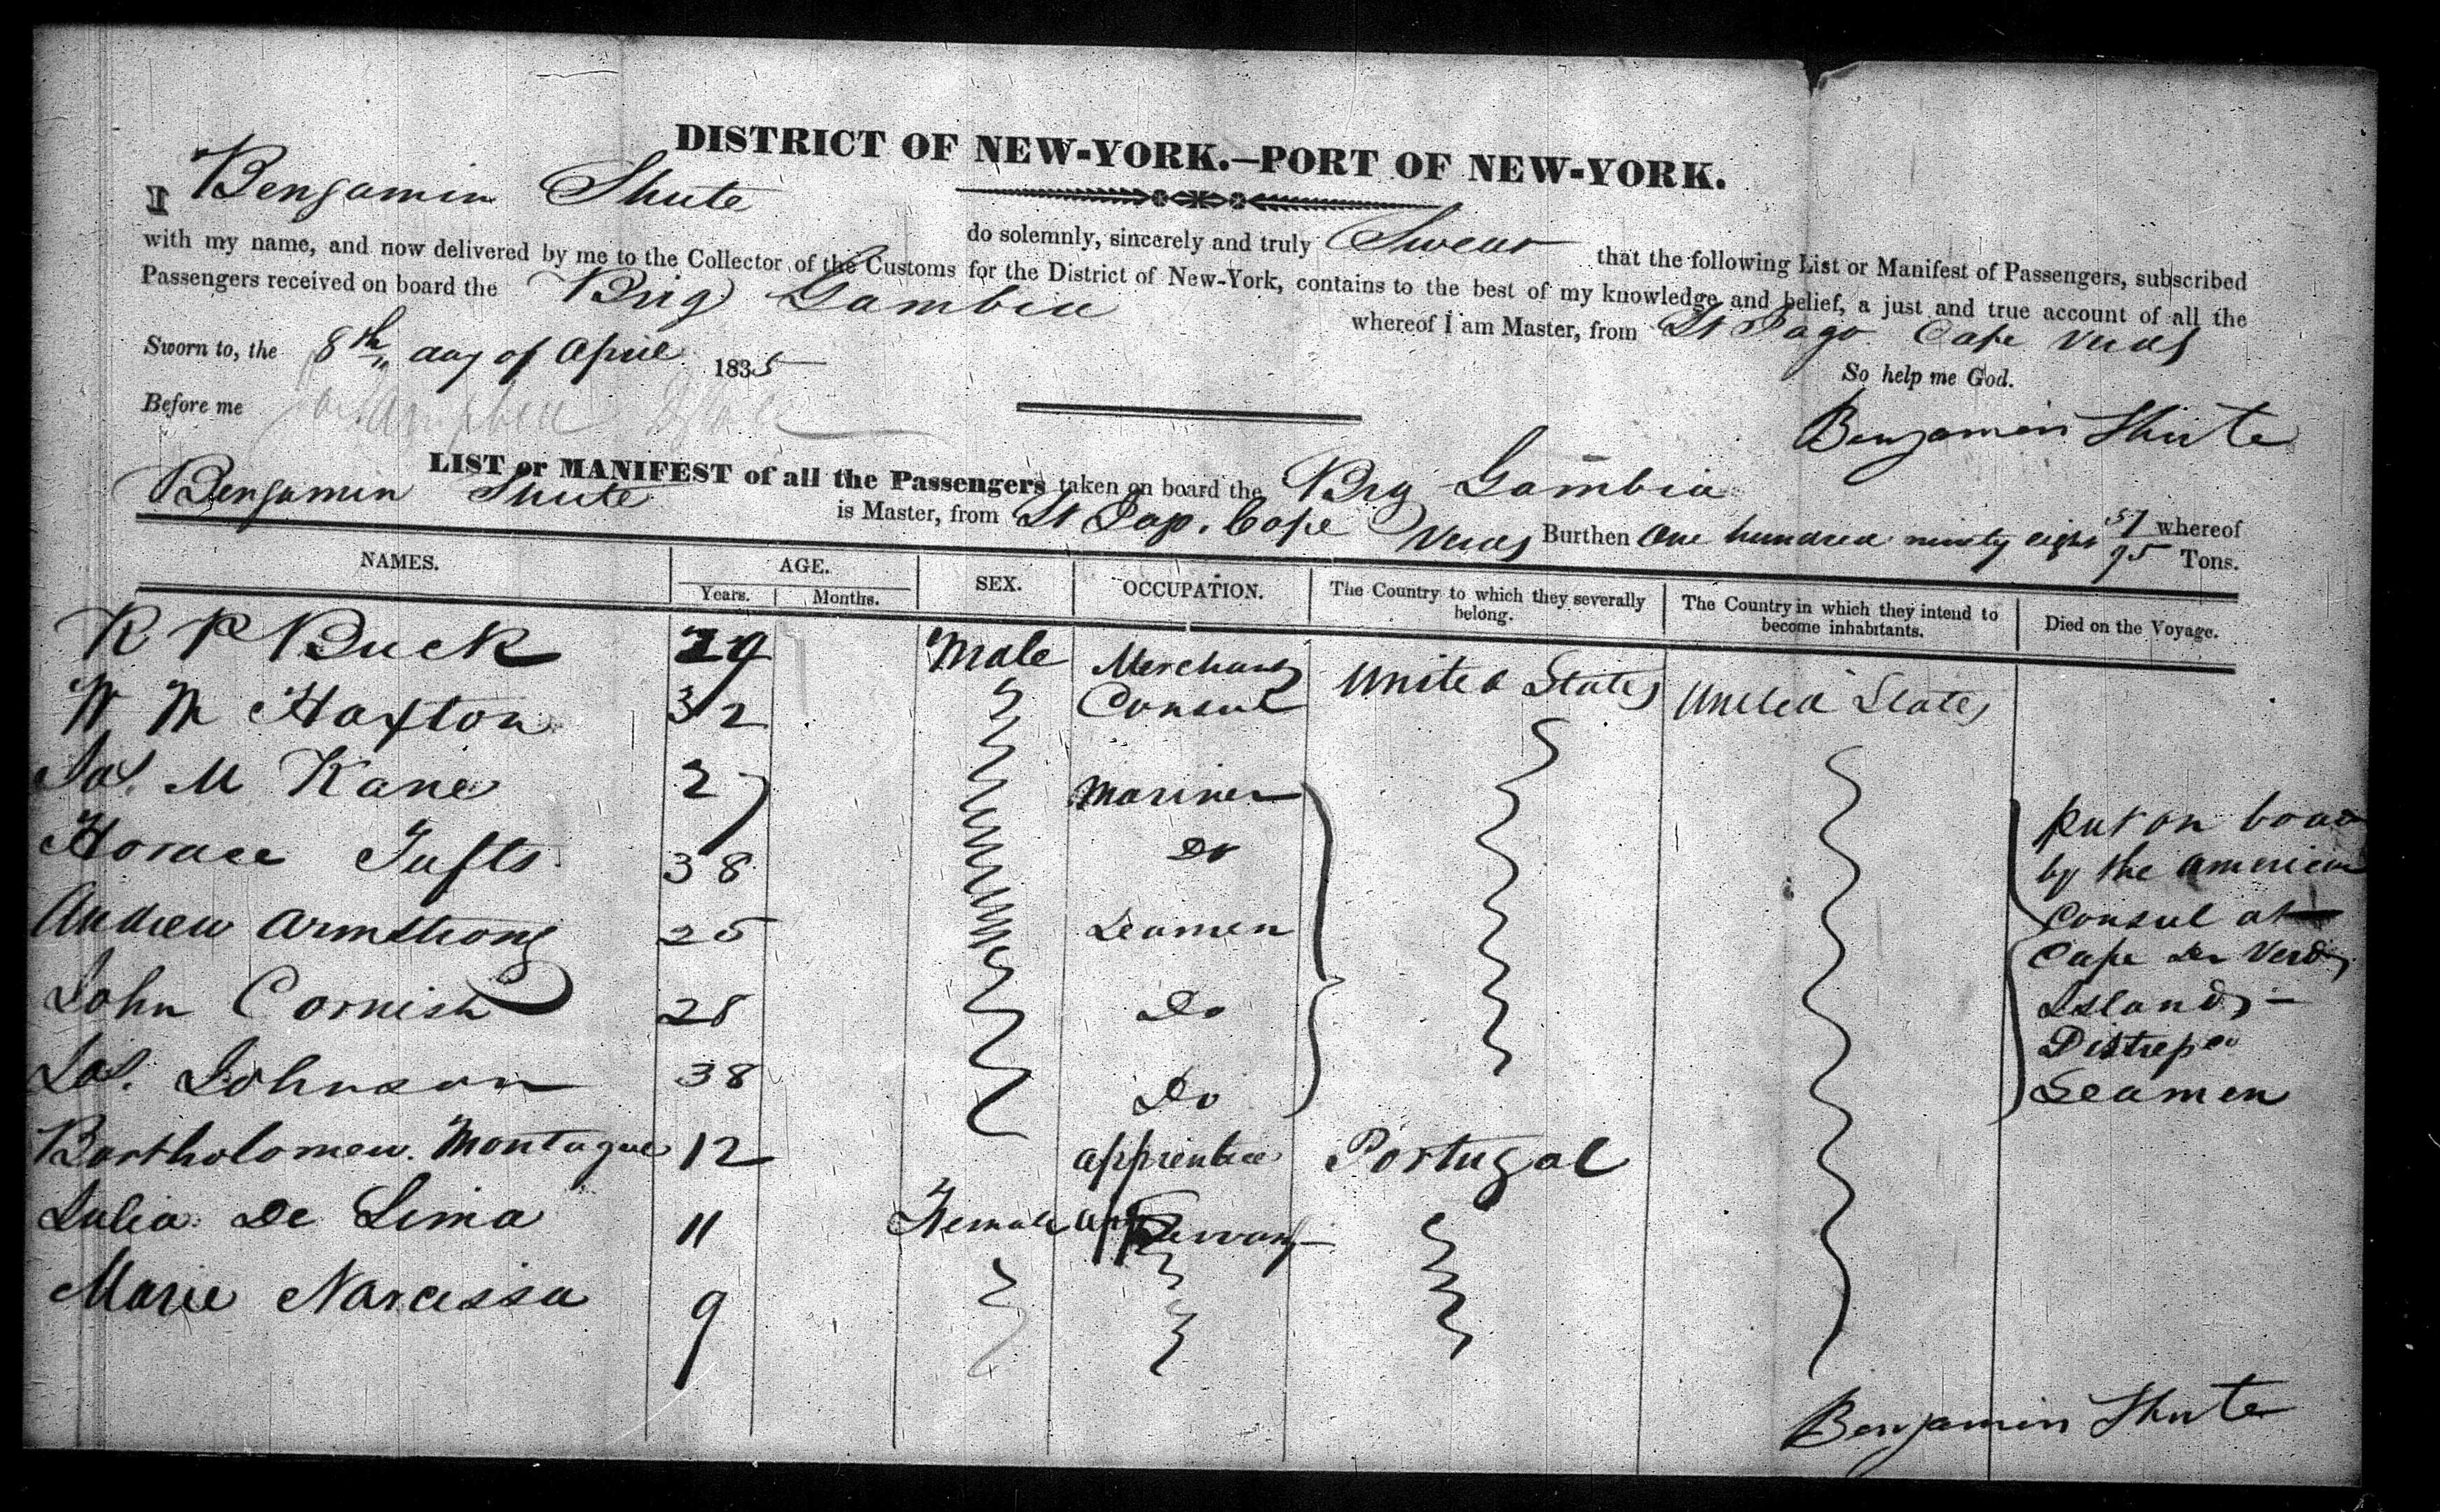 DISTRICT OF NEW-YORK.—PORT OF NEW-YORK.
I Benjamin Shute do solemnly, sincerely and truly Swear that the following List or Manifest of Passengers, subscribed
with my name, and now delivered by me to the Collector of the Customs for the District of New-York, contains to the best of my knowledge and belief, a just and true account of all the
Passengers received on board the Brig Gambia whereof I am Master, from St Iago Cape Verds
Sworn to, the 8th day of April 1835 So help me God.
Before me Benjamin Shute
LIST or MANIFEST of all the Passengers taken on board the Brig Gambia whereof
Benjamin Shute is Master, from St Iago, Cape Verds Burthen One hundred ninety eight 57/95 Tons.
NAMES. AGE. SEX. OCCUPATION. The Country to which they severally belong. The Country in which they intend to become inhabitants. Died on the Voyage.
Years. Months.
R P Buck 29 Male Merchant United States United States
W M Haxton 32 Consul
Jas. M Kane 27 Mariner
Horace Tufts 38 Do
Andrew Armstrong 25 Seamen
John Cornish 28 Do
Jas. Johnson 38 Do
put on board
by the American
Consul at
Cape De Verds
Islands -
Distressed
Seamen
Bartholomew Montague 12 apprentice Portugal
Julia De Lima 11 Female app Servant
Marie Narcissa 9
Benjamin Shute